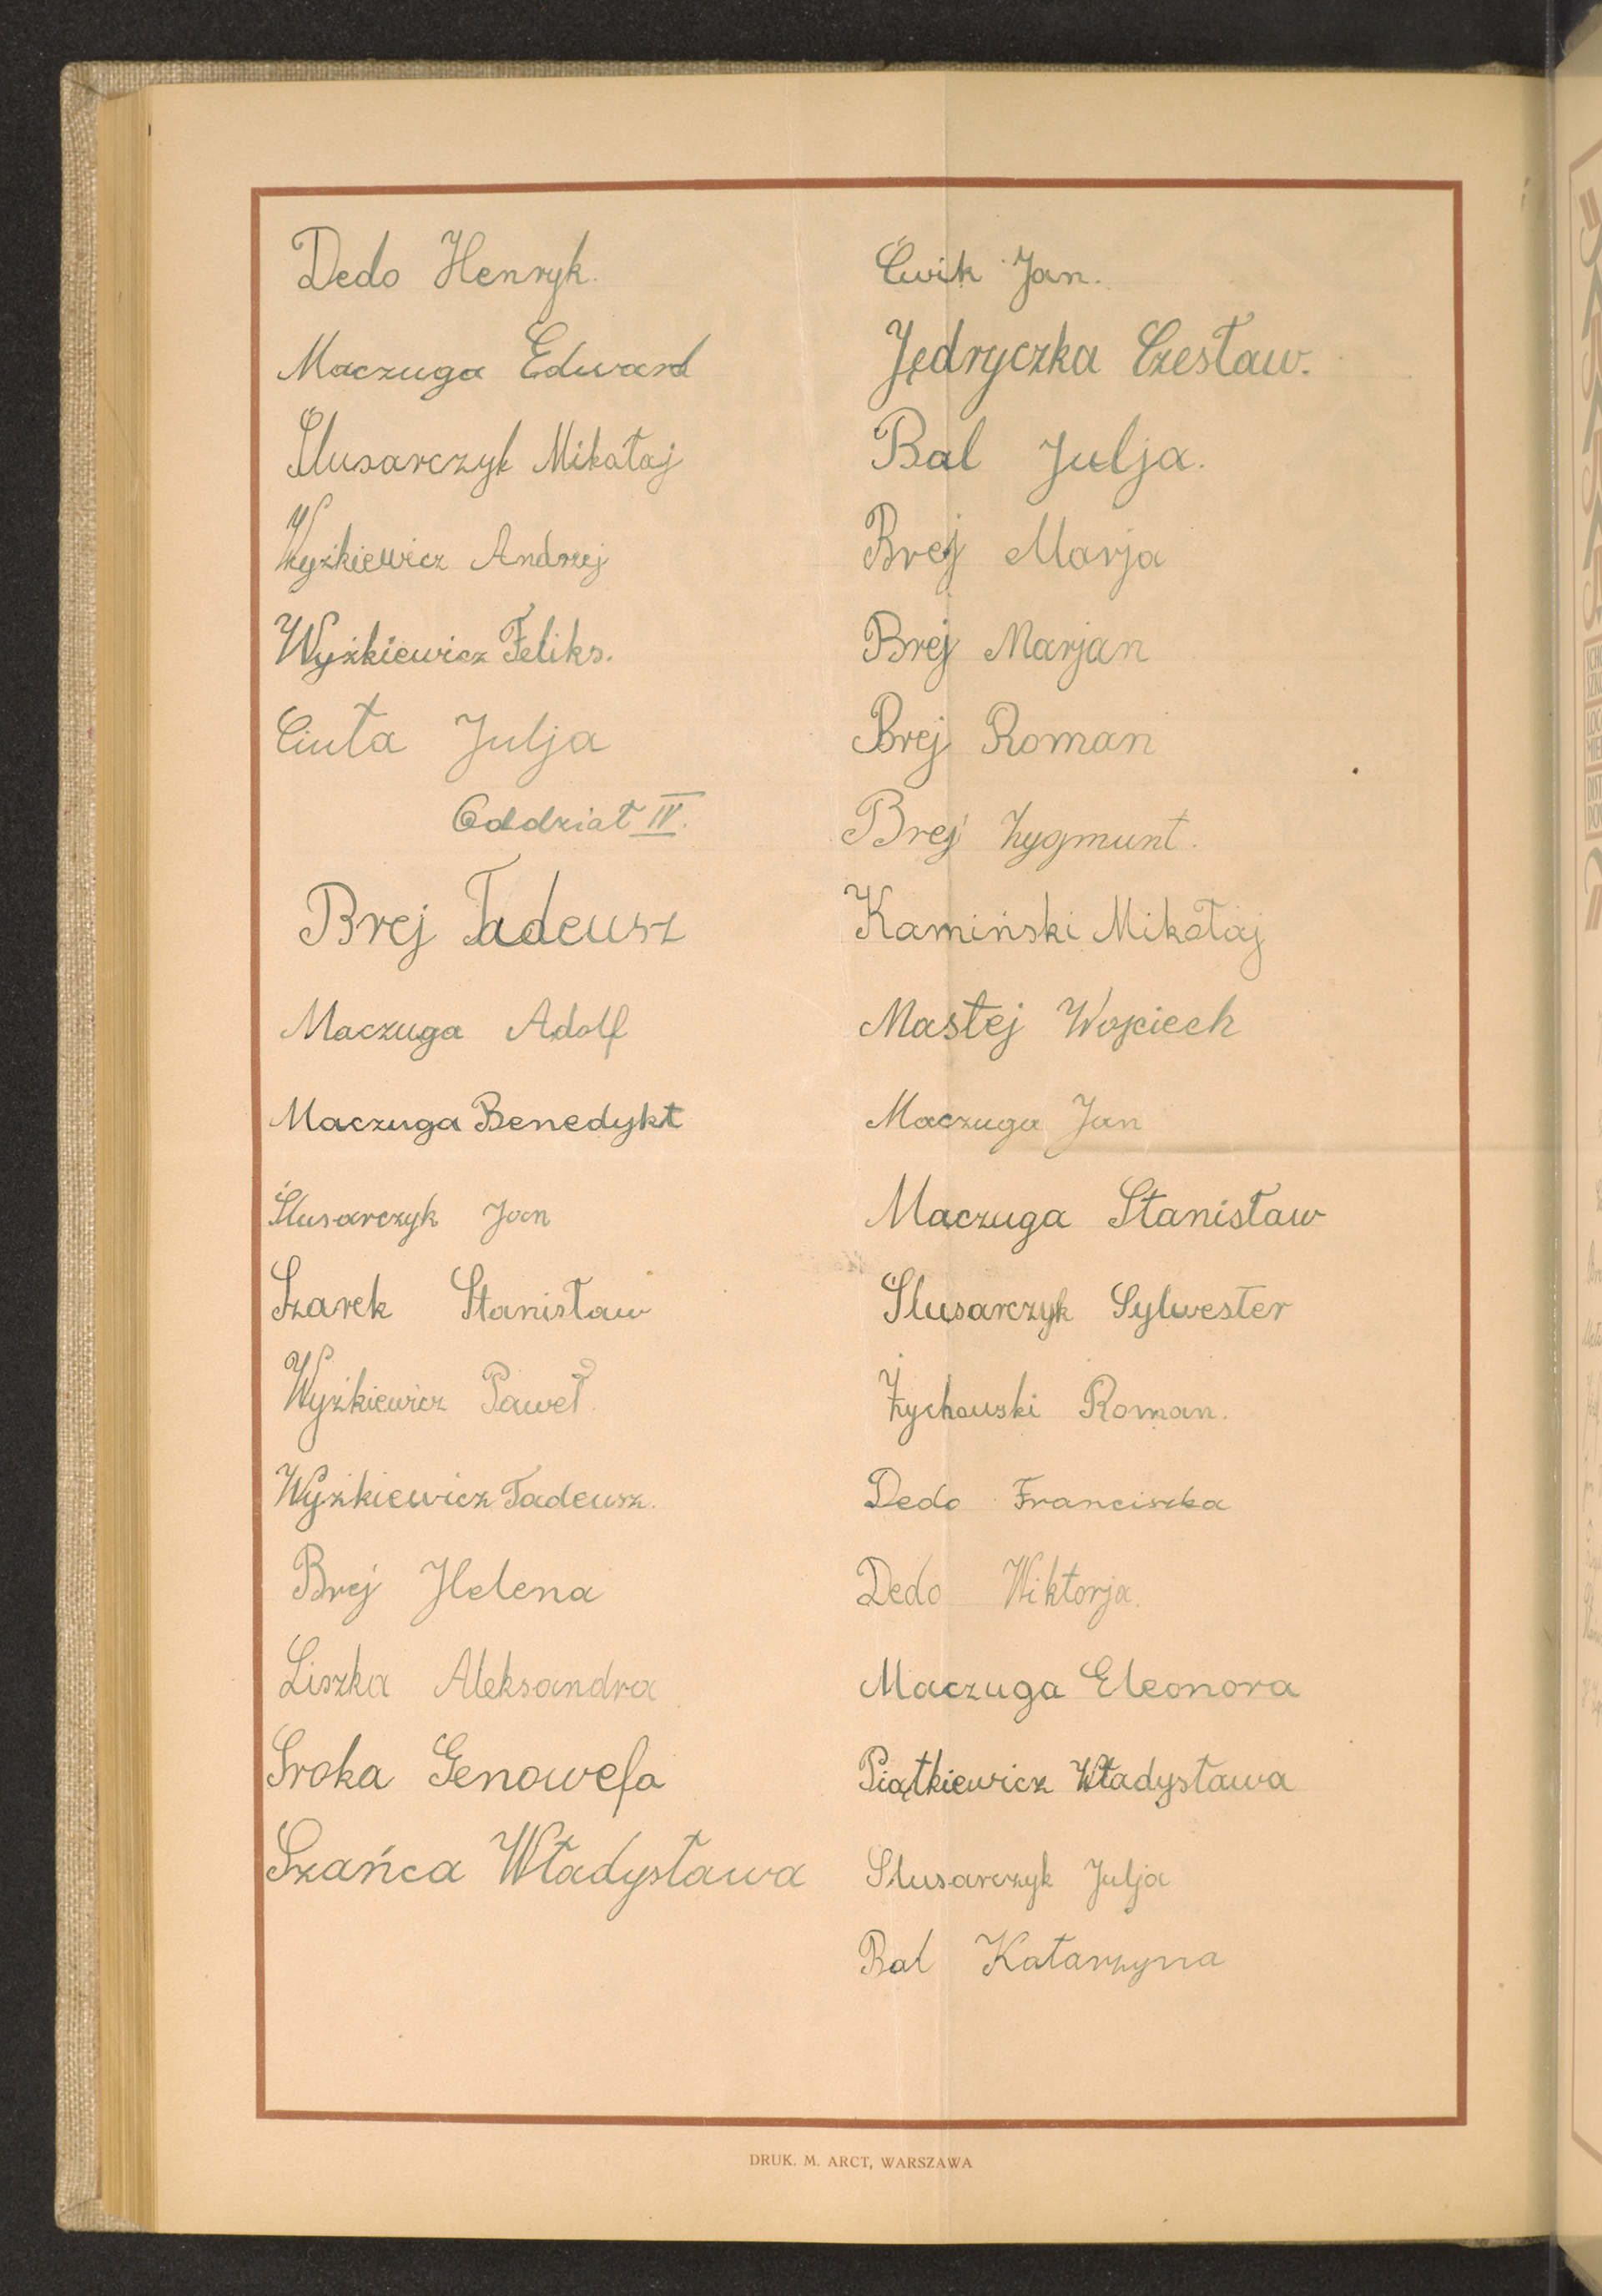 Dedo Henryk.
Maczuga Edward
Ślusarczyk Mikołaj
Wyżkiewicz Andrzej
Wyżkiewicz Feliks.
Ciuła Julja
Oddział IV.
Brej Tadeusz
Maczuga Adolf
Maczuga Benedykt
Ślusarczyk Jan
Szarek Stanisław
Wyżkiewicz Paweł.
Wyżkiewicz Tadeusz.
Brej Helena
Liszka Aleksandra
Sroka Genowefa
Szańca Władysława
Ćwik Jan.
Jędryczka Czesław.
Bal Julja.
Brej Marja
Brej Marjan
Brej Roman
Brej Zygmunt.
Kamiński Mikołaj
Mastej Wojciech
Maczuga Jan
Maczuga Stanisław
Ślusarczyk Sylwester
Żychowski Roman.
Dedo Franciszka
Dedo Wiktorja.
Maczuga Eleonora
Piątkiewicz Władysława
Slusarczyk Julja
Bal Katarzyna
DRUK. M. ARCT, WARSZAWA